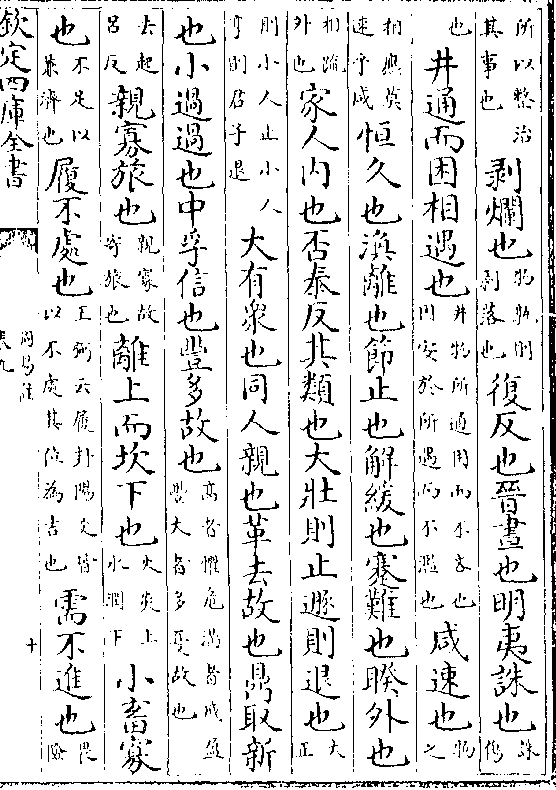 所以整治其事也剥爛也物熟則剥落也復反也晉晝也明夷誅也誅傷
也井通而困相遇也井物所通用而不吝也困安於所遇而不濫也咸速也物之
相應莫速乎咸恒久也渙離也節止也解緩也蹇難也睽外也
相疏外也家人内也否泰反其類也大壯則止遯則退也大正
則小人止小人亨則君子退大有衆也同人親也革去故也鼎取新
也小過過也中孚信也豐多故也高者懼危滿者戒盈豐大者多憂故也
去起呂反親寡旅也親寡故寄旅也離上而坎下也火炎上水潤下小畜寡
也不足以兼濟也履不處也王弼云履卦陽爻皆以不處其位為吉也需不進也畏險
欽定四庫全書
周易註
卷九
十